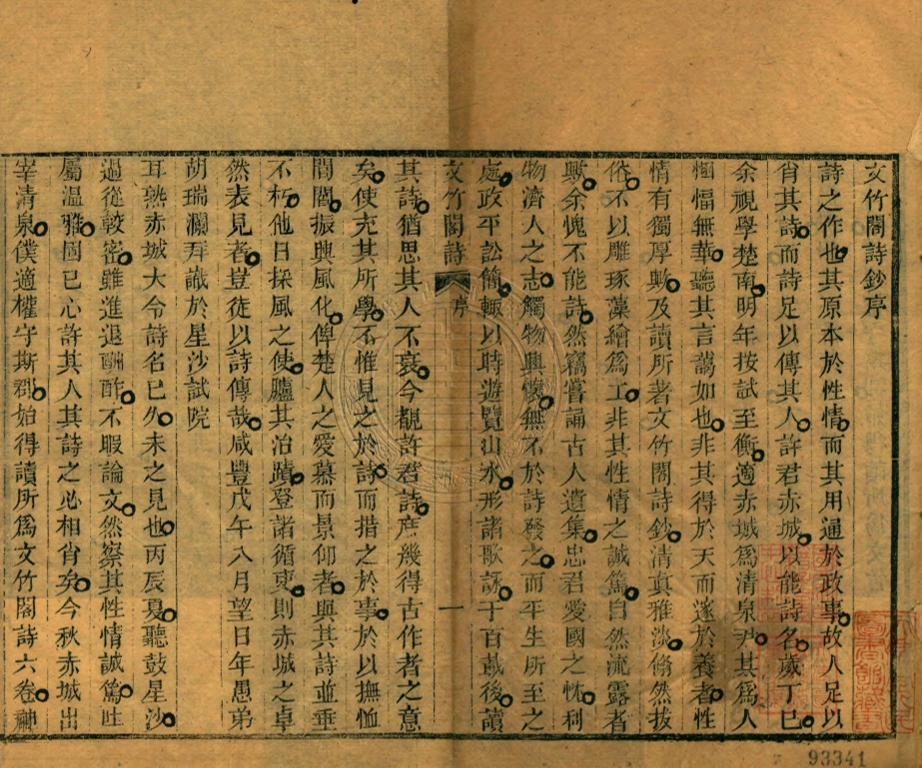 文竹閣詩鈔序
詩之作也其原本於性情而其用通於政事故人足以
肖其詩而詩足以傳其人許君赤城以能詩名歲丁巳
余視學楚南明年按試至衡適赤城為清泉尹其為人
悃愊無華聽其言藹如也非其得於天而遂於養者性
情有獨厚歟及讀所著文竹閣詩鈔清真雅淡翛然拔
俗不以雕琢藻繪為工非其性情之誠篤自然流露者
歟余愧不能詩然竊嘗誦古人遺集忠君愛國之忱利
物濟人之志觸物興懷無不於詩發之而平生所至之
處政平訟簡輒以時遊覽山水形諸歌詠千百載後讀
文竹閣詩 序 一
其詩猶思其人不衰今觀許君詩庶幾得古作者之意
矣使充其所學不惟見之於詩而措之於事於以撫恤
閭閻振興風化俾楚人之愛慕而景仰者與其詩並垂
不朽他日採風之使臚其治蹟登諸循吏則赤城之卓
然表見者豈徒以詩傳哉咸豐戊午八月望日年愚弟
胡瑞瀾拜識於星沙試院
耳熟赤城大令詩名已久未之見也丙辰夏聽鼓星沙
過從較密雖進退酬酢不暇論文然察其性情誠篤吐
屬溫雅固已心許其人其詩之必相肖矣今秋赤城出
宰清泉僕適權守斯郡始得讀所為文竹閣詩六卷神
93341